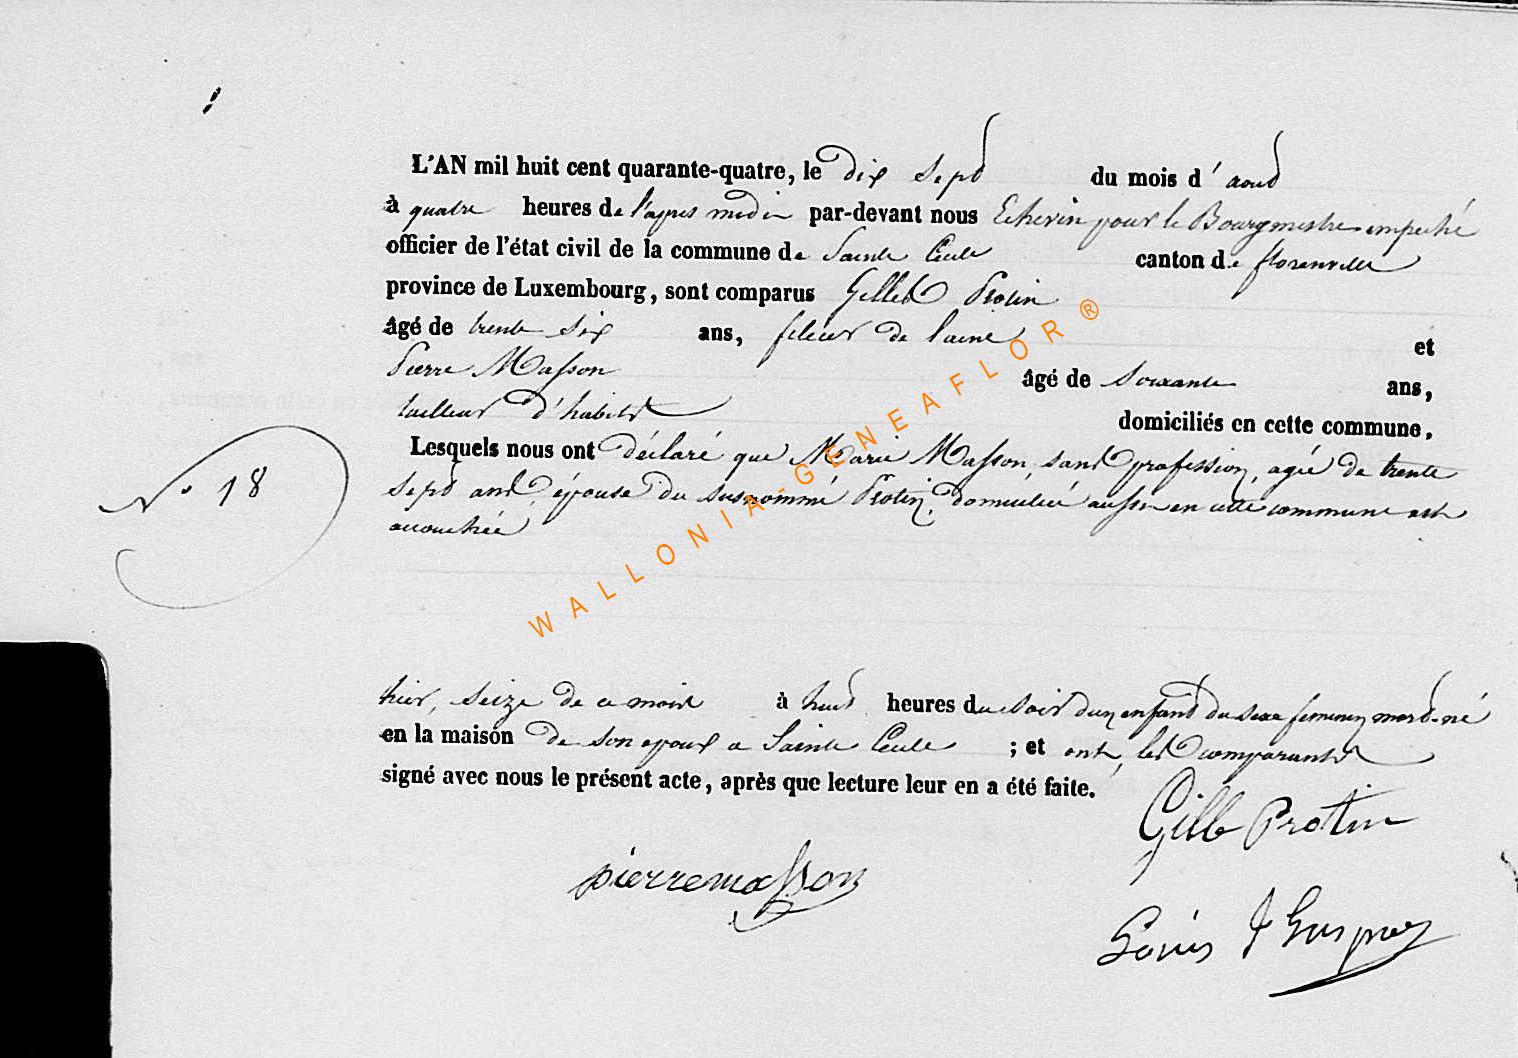 L'AN mil huit cent quarante-quatre, le dix sept du mois d'aout
à quatre heures de l'apres midi par-devant nous Echevin pour le Bourgmestre empeché
officier de l'état civil de la commune de Sainte Cecile canton de florenville
province de Luxembourg, sont comparus Gilles Protin
âgé de trente six ans, fileur de laine et
Pierre Masson âgé de soixante ans,
tailleur d'habits domiciliés en cette commune.
Lesquels nous ont déclaré que Marie Masson, sans profession, agée de trente
N.° 18
sept ans épouse du susnommé Protin, domiciliée aussi en cette commune est
accouchée
hier, seize de ce mois à huit heures du soir d'un enfant du sexe feminin mort-né
en la maison de son epoux a Sainte Cecile ; et ont, les comparants
signé avec nous le présent acte, après que lecture leur en a été faite.
Gille Protin
pierre masson
Louis J Gaspar
WALLONIA-GENEAFLOR ®